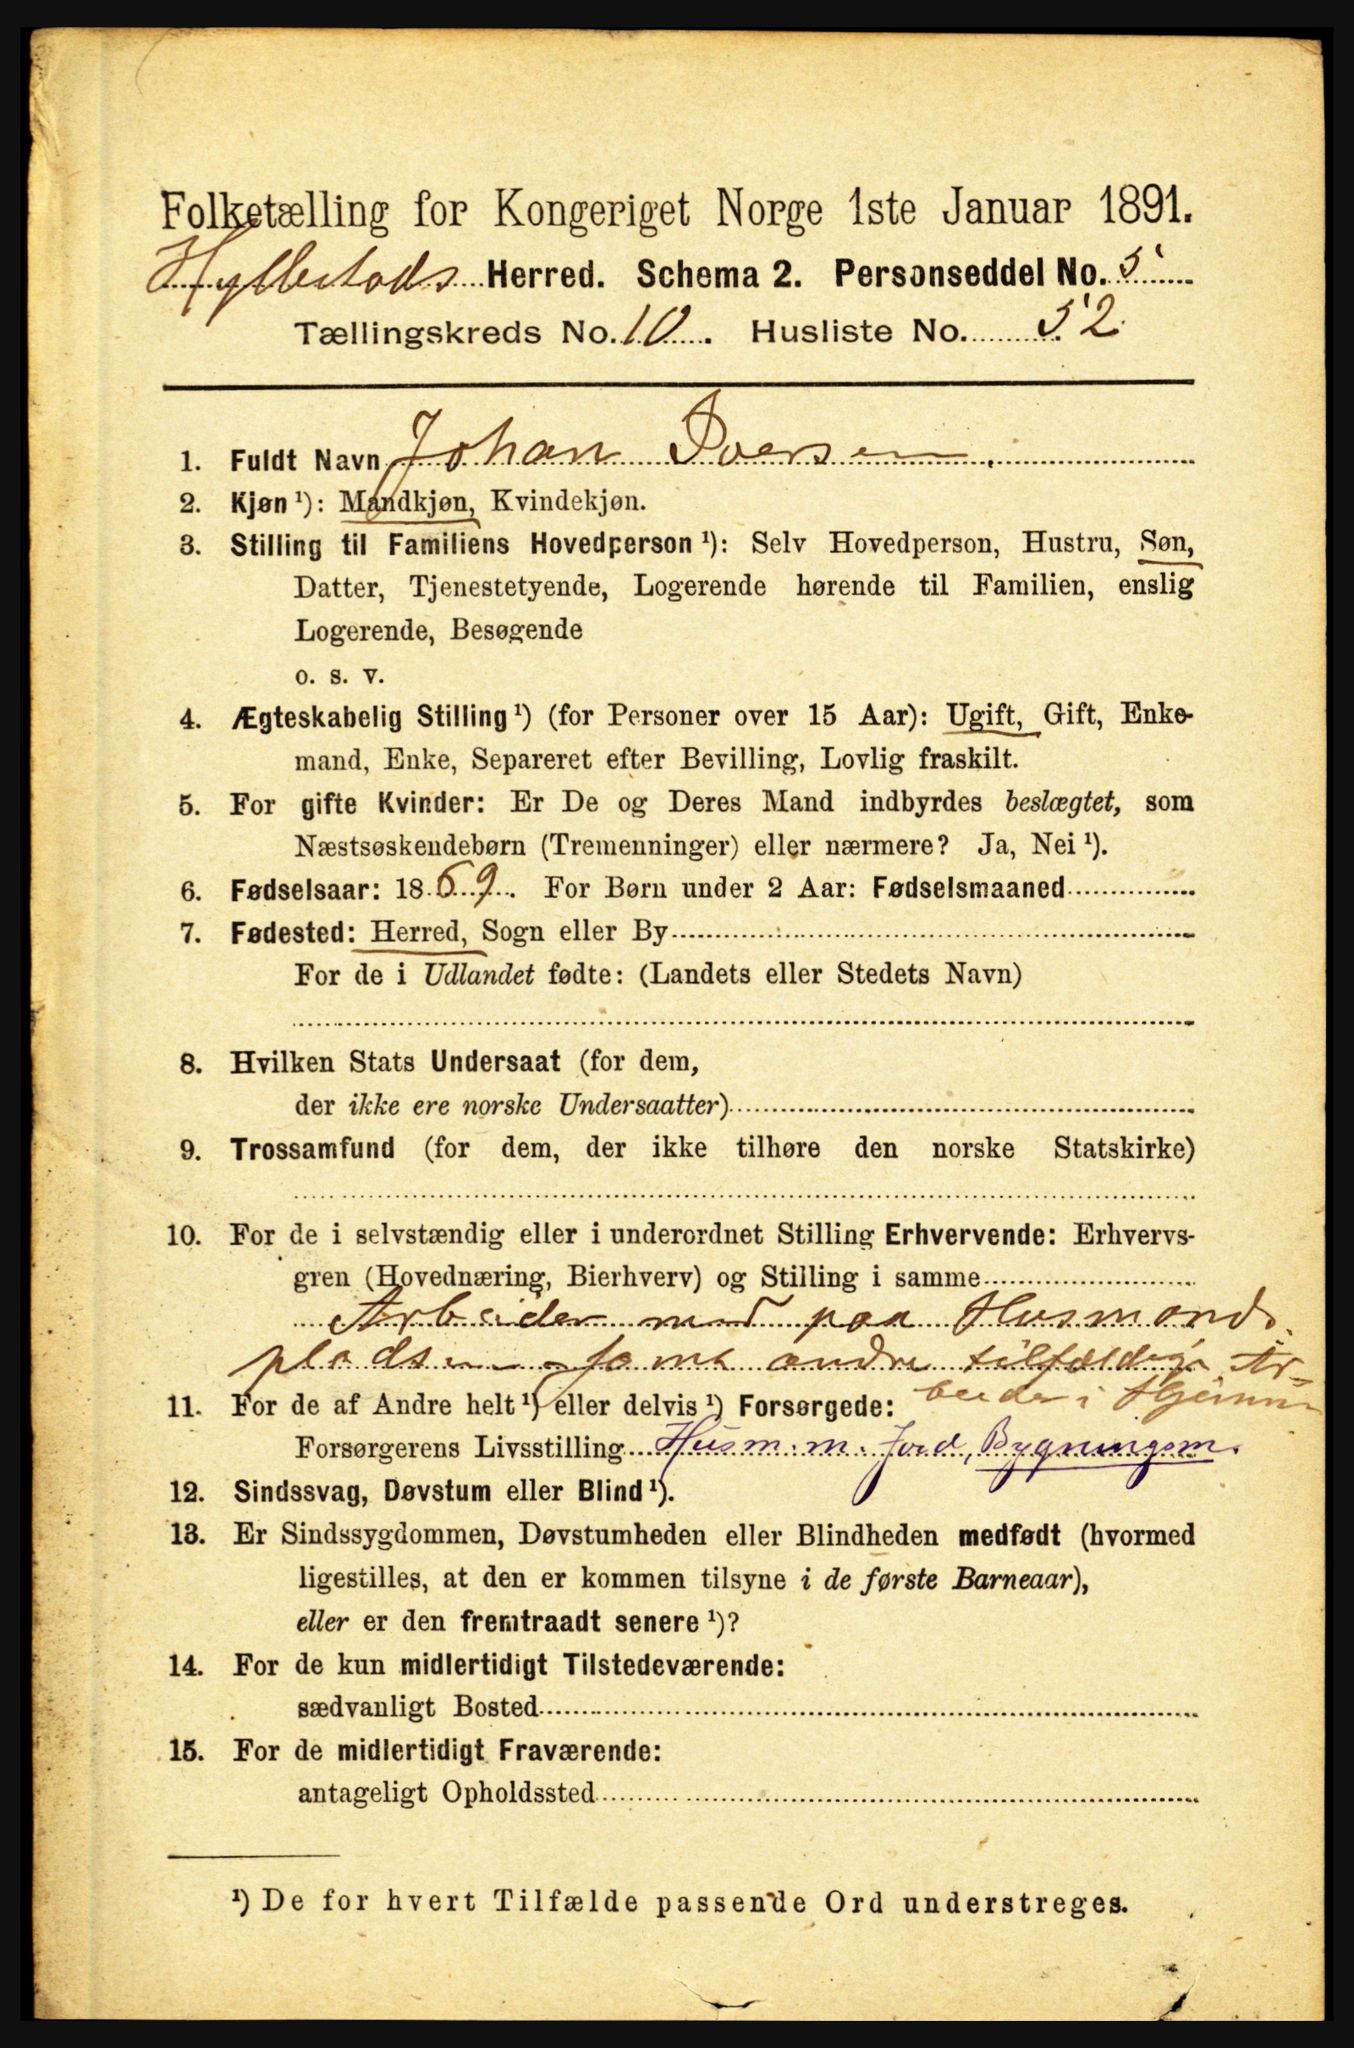 Folketælling for Kongeriget Norge 1ste Januar 1891.
Hyllestads Herred. Schema 2. Personseddel No. 5
Tællingskreds No. 10. Husliste No. 52
1. Fuldt Navn Johan Iversen
2. Kjøn ¹): Mandkjøn, Kvindekjøn.
3. Stilling til Familiens Hovedperson ¹): Selv Hovedperson, Hustru, Søn,
Datter, Tjenestetyende, Logerende hørende til Familien, enslig
Logerende, Besøgende
o. s. v.
4. Ægteskabelig Stilling ¹) (for Personer over 15 Aar): Ugift, Gift, Enke-
mand, Enke, Separeret efter Bevilling, Lovlig fraskilt.
5. For gifte Kvinder: Er De og Deres Mand indbyrdes beslægtet, som
Næstsøskendebørn (Tremenninger) eller nærmere? Ja, Nei ¹).
6. Fødselsaar: 1869. For Børn under 2 Aar: Fødselsmaaned
7. Fødested: Herred, Sogn eller By
For de i Udlandet fødte: (Landets eller Stedets Navn)
8. Hvilken Stats Undersaat (for dem,
der ikke ere norske Undersaatter)
9. Trossamfund (for dem, der ikke tilhøre den norske Statskirke)
10. For de i selvstændig eller i underordnet Stilling Erhvervende: Erhvervs-
gren (Hovednæring, Bierhverv) og Stilling i samme
Arbeider med paa Husmands
pladsen samt andre tilfældige Ar-
beider i Hjemmet
11. For de af Andre helt ¹) eller delvis ¹) Forsørgede:
Forsørgerens Livsstilling Husm. m. Jord, Bygningsm.
12. Sindssvag, Døvstum eller Blind ¹).
13. Er Sindssygdommen, Døvstumheden eller Blindheden medfødt (hvormed
ligestilles, at den er kommen tilsyne i de første Barneaar),
eller er den fremtraadt senere ¹)?
14. For de kun midlertidigt Tilstedeværende:
sædvanligt Bosted
15. For de midlertidigt Fraværende:
antageligt Opholdssted
¹) De for hvert Tilfælde passende Ord understreges.